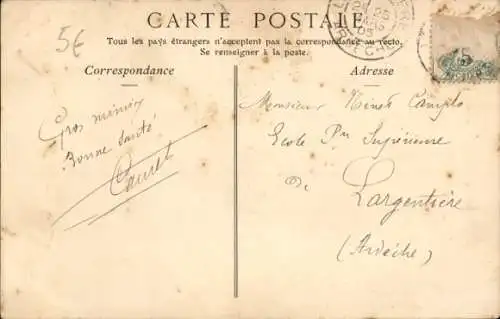 5€
CARTE POSTALE
Tous les pays étrangers n'acceptent pas la correspondance au recto.
Se renseigner à la poste.
Correspondance
Adresse
Gros
Bonne Santé
Monsieur
Ecole Pre Supérieure
De
Largentière
(Ardèche)